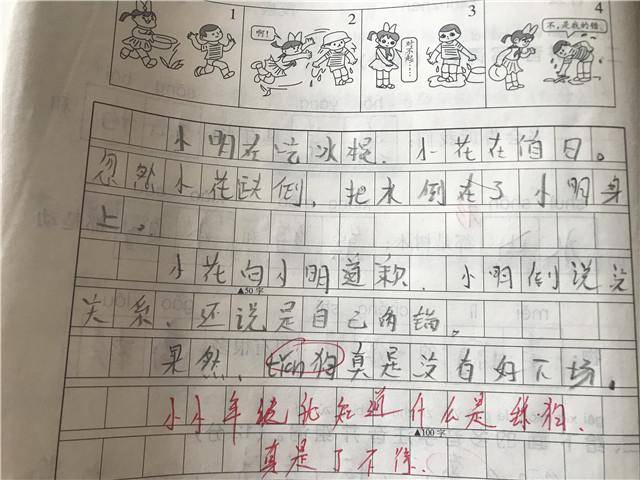 1 2 3 4
啊!
对不起……
不,是我的错
小明在吃冰棍,小花在值日。
忽然小花跌倒,把水倒在了小明身
上。
小花向小明道歉,小明倒说没
▲50字
关系,还说是自己的错。
果然,tian狗真是没有好下场。
小小年纪就知道什么是舔狗,
▲100字
真是了不得.